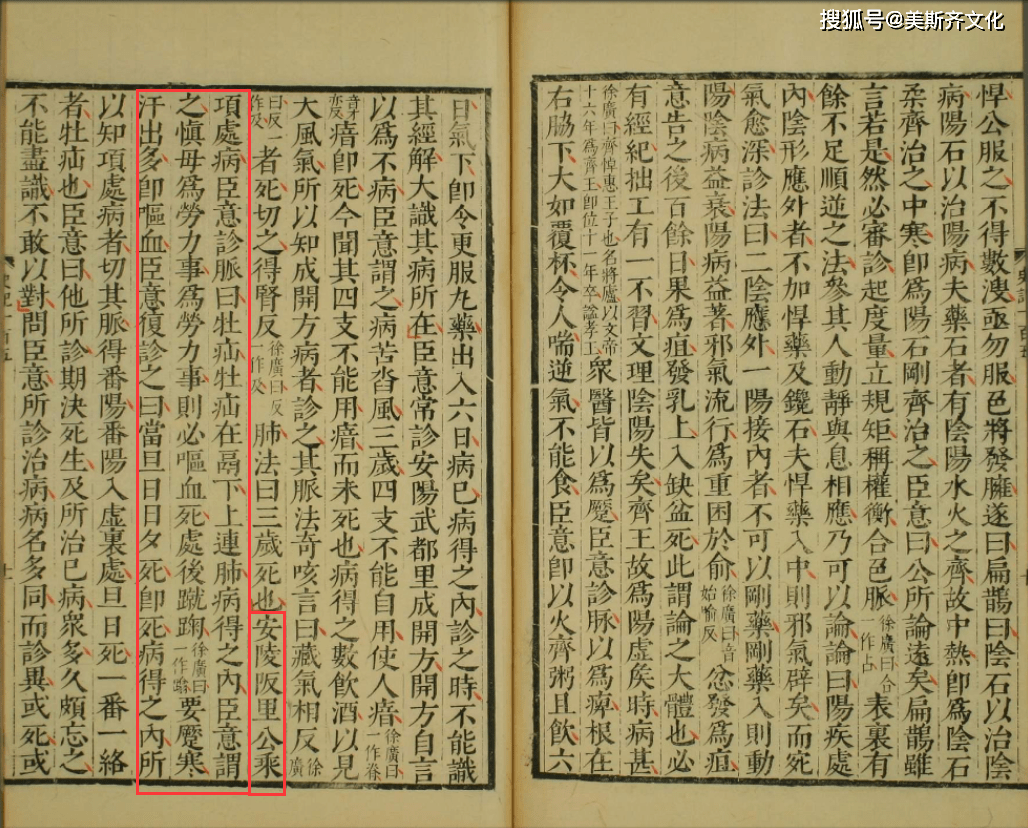 搜狐号@美斯齐文化
悍公服之不得數溲亟勿服色將發臃遂曰扁鵲曰陰石以治陰
病陽石以治陽病夫藥石者有陰陽水火之齊故中熱卽爲陰石
柔齊治之中寒卽爲陽石剛齊治之臣意曰公所論遠矣扁鵲雖
言若是然必審診起度量立規矩稱權衡合色脈徐廣曰合一作占表裏有
餘不足順逆之法參其人動靜與息相應乃可以論論曰陽疾處
內陰形應外者不加悍藥及鑱石夫悍藥入中則邪氣辟矣而宛
氣愈深診法曰二陰應外一陽接內者不可以剛藥剛藥入則動
陽陰病益衰陽病益著邪氣流行爲重困於俞徐廣曰音始喻反忿發爲疽
意告之後百餘日果爲疽發乳上入缺盆死此謂論之大體也必
有經紀拙工有一不習文理陰陽失矣齊王故爲陽虛矦時病甚
徐廣曰齊悼惠王子也名將廬以文帝十六年爲齊王卽位十一年卒諡孝王衆醫皆以爲蹷臣意診脈以爲痺根在
右脇下大如覆杯令人喘逆氣不能食臣意卽以火齊粥且飲六
日氣下卽令更服丸藥出入六日病已病得之內診之時不能識
其經解大識其病所在臣意常診安陽武都里成開方開方自言
以爲不病臣意謂之病苦沓風三歲四支不能自用使人瘖徐廣曰一作脊
音才亥反瘖卽死今聞其四支不能用瘖而未死也病得之數飲酒以見
大風氣所以知成開方病者診之其脈法奇咳言曰藏氣相反徐廣
曰反一作及者死切之得腎反徐廣曰反一作及肺法曰三歲死也安陵阪里公乘
項處病臣意診脈曰牡疝牡疝在鬲下上連肺病得之內臣意謂
之愼毋爲勞力事爲勞力事則必嘔血死處後蹴踘徐廣曰一作蹋要蹷寒
汗出多卽嘔血臣意復診之曰當旦日日夕死卽死病得之內所
以知項處病者切其脈得番陽番陽入虛裏處旦日死一番一絡
者牡疝也臣意曰他所診期決死生及所治已病衆多久頗忘之
不能盡識不敢以對問臣意所診治病病名多同而診異或死或